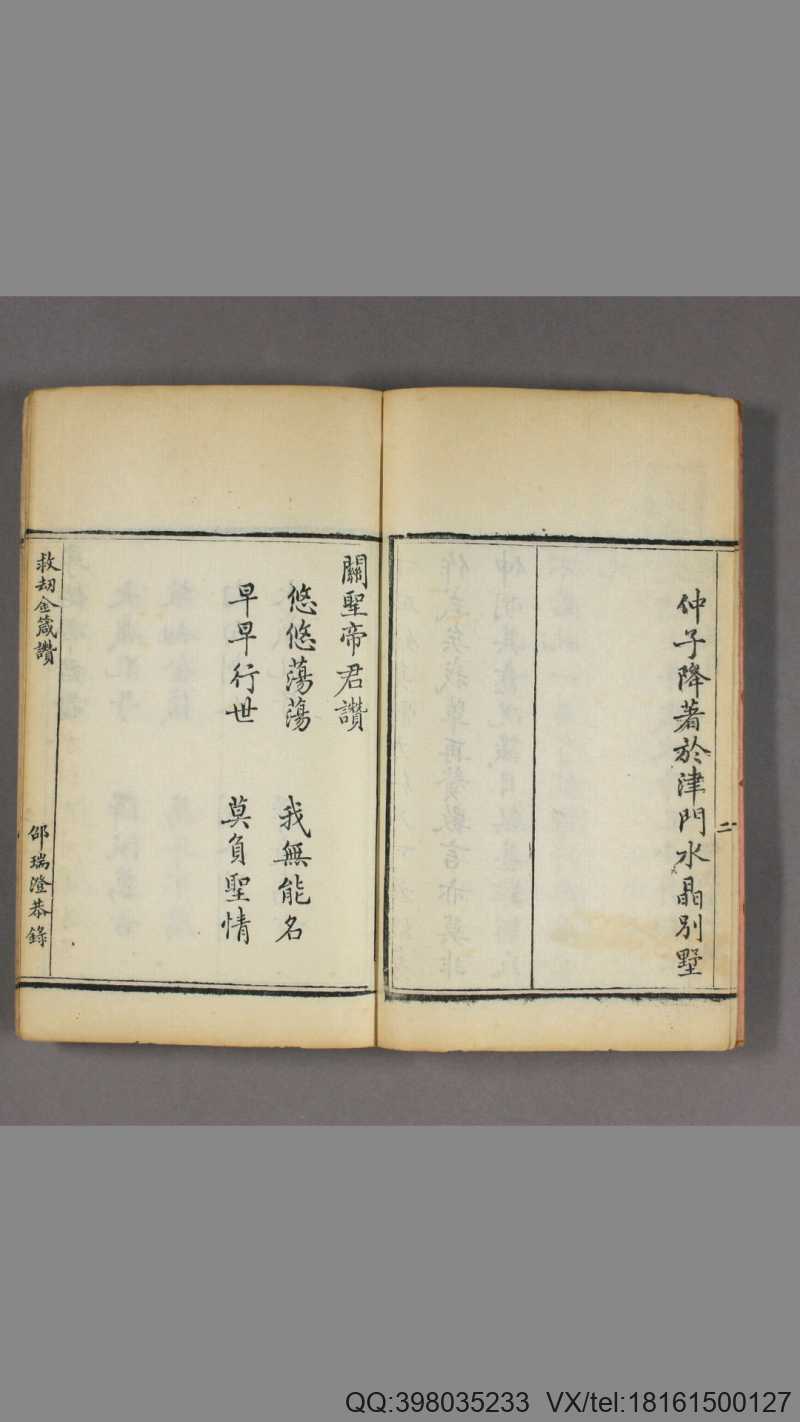 仲子降著於津門水晶別墅
二
關聖帝君讚
悠悠蕩蕩　我無能名
早早行世　莫負聖情
救劫金箴讚
邵瑞澄恭錄
QQ:398035233 VX/tel:18161500127